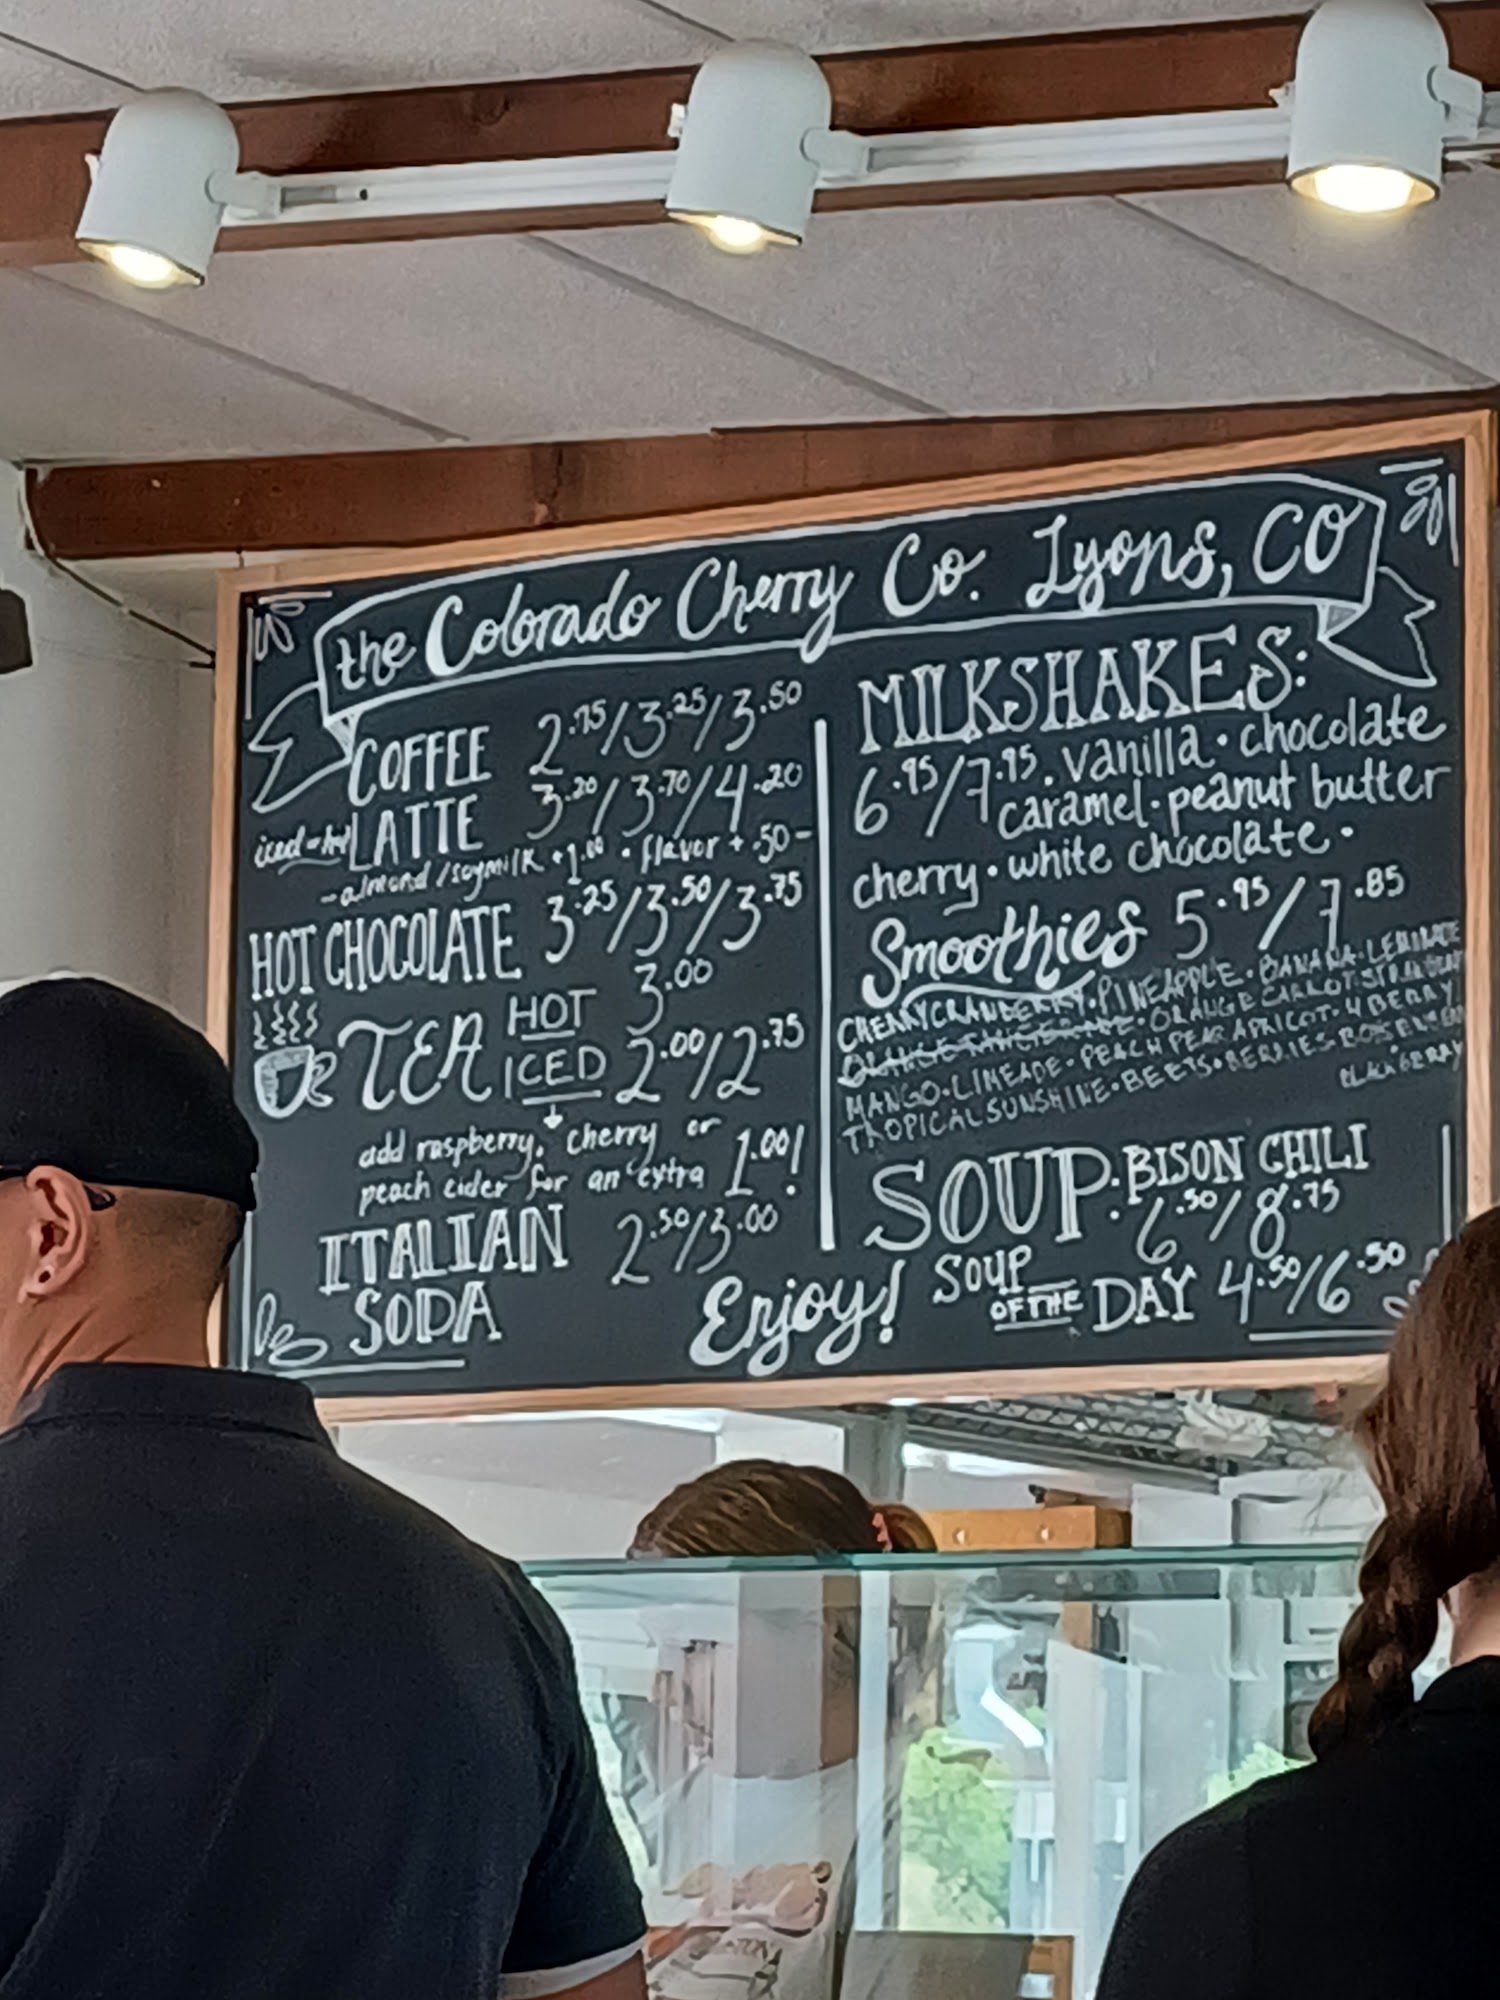 the Colorado Cherry Co. Lyons, CO
COFFEE 2.75/3.25/3.50
iced or hot LATTE 3.20/3.70/4.20
- almond/soymilk +1.00 • flavor +.50 -
HOT CHOCOLATE 3.25/3.50/3.75
TEA HOT 3.00
ICED 2.00/2.75
add raspberry, cherry or
peach cider for an extra 1.00!
ITALIAN 2.50/3.00
SODA
MILKSHAKES:
6.95/7.95. vanilla • chocolate
caramel • peanut butter
cherry • white chocolate •
Smoothies 5.95/7.85
CHERRY CRANBERRY • PINEAPPLE • BANANA • LEMONADE
ORANGE TANGERINE • ORANGE CARROT
MANGO • LIMEADE • PEACH PEAR APRICOT • 4 BERRY
TROPICAL SUNSHINE • BEETS • BERRIES
BLACKBERRY
SOUP: BISON CHILI
6.50/8.75
SOUP OF THE DAY 4.50/6.50
Enjoy!